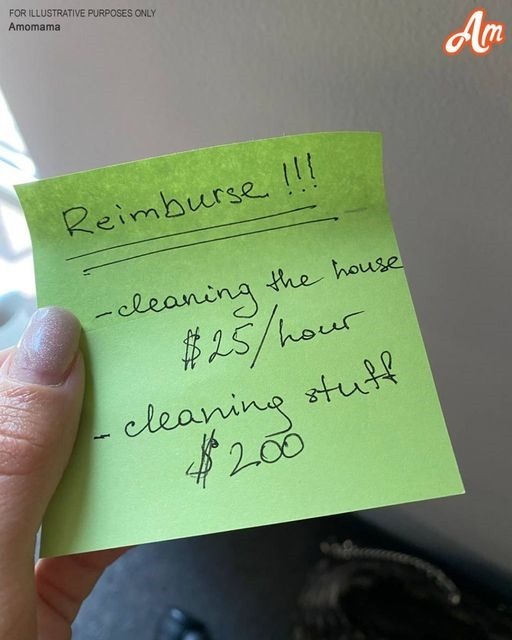 FOR ILLUSTRATIVE PURPOSES ONLY
Amomama
Am
Reimburse !!!
-cleaning the house
$25/hour
-cleaning stuff
$200